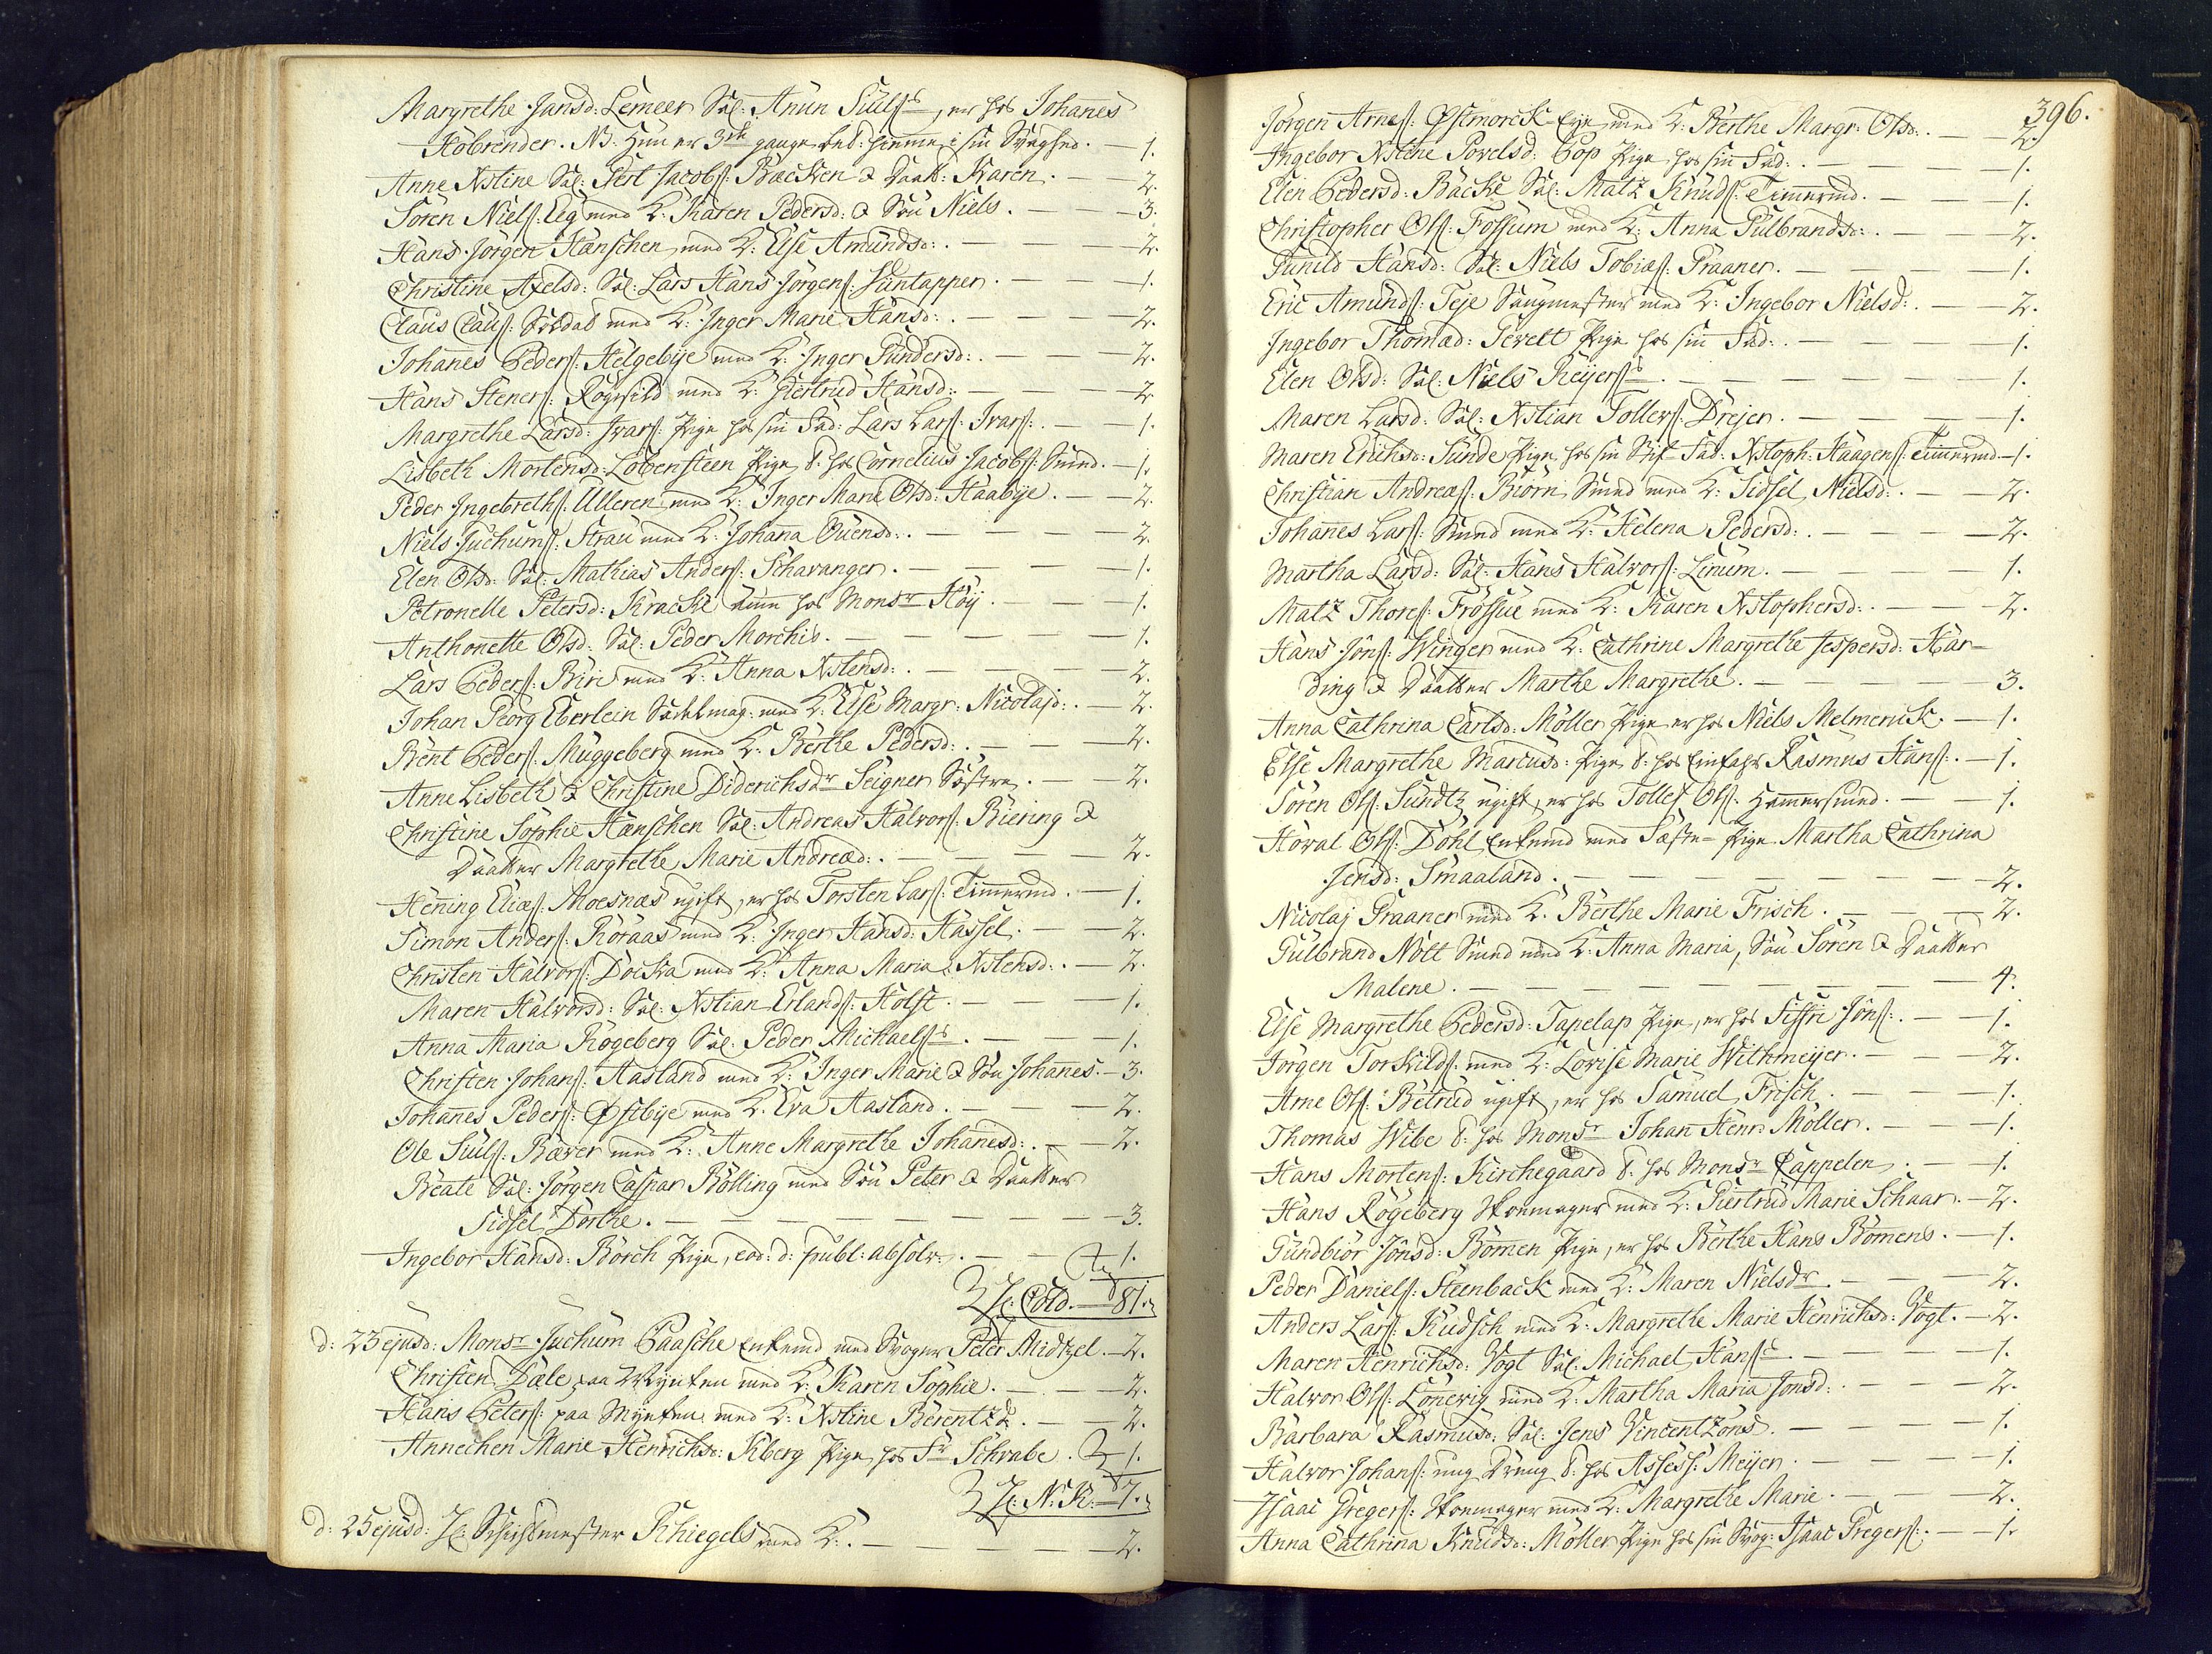 Margrethe Jansd: Lemeer Sal: Anun Siulss, er hos Johanes
Kobrender. NB. Hun er 3de gange bed: hiemme i sin Svaghed. — 1.
Anne Xstine Sal: Gert Jacobs: Backen & Daatt: Karen. — 2.
Sören Niels: Eeg med K: Karen Pedersd: & Sön Niels. — 3.
Hans Jörgen Hanschen med K: Else Amundsd: — 2.
Christine Axelsd: Sal: Lars Hans Jörgens: Suntapper. — 1.
Claus Claus: Sördal med K: Inger Marie Hansd: — 2.
Johanes Peders: Helgebye med K: Inger Gundersd: — 2.
Hans Steners: Rögwild med K: Giertrud Hansd: — 2
Margrethe Larsd: Ivars: Pige hos sin Fad: Lars Lars: Ivars: — 1.
Lisbeth Mortensd: Löbensteen Pige t. hos Cornelius Jacobs: Smed. — 1.
Peder Ingebreths: Ulleren med K: Inger Marie Olsd: Haabye. — 2.
Niels Juchums: Strau med K: Johana Ouensd: — 2.
Elen Olsd: Sal: Mathias Anders: Schavanger. — 1.
Petronelle Petersd: Kracke Am̄e hos Monsr Höy. — 1.
Anthonette Olsd: Sal: Peder Morchis. — 1.
Lars Peders: Biri med K: Anna Xstensd: — 2.
Johan Georg Eberlein Sadelmag: med K: Else Margr: Nicolajd: — 2.
Bent Peders: Muggeberg med K: Berthe Pedersd: — 2.
Anne Lisbeth & Christine Diderichsdr Seigner Söstre. — 2.
Christine Sophie Hanschen Sal: Andreas Halvors: Biering &
Daatter Margrethe Marie Andread: — 2.
Hening Elias: Moesnæs ugift, er hos Torsten Lars: Tim̄ermd. — 1.
Simon Anders: Röraas med K: Inger Hansd: Hassel. — 2.
Christen Halvors: Docka med K: Anna Maria Xstensd: — 2.
Maren Halvorsd: Sal: Xstian Erlands: Holst. — 1.
Anna Maria Rögeberg Sal: Peder Michaelss. — 1.
Christen Johans: Aasland med K: Inger Marie & Sön Johanes. — 3.
Johanes Peders: Østbye med K: Eva Aasland. — 2.
Ole Siuls: Bæver med K: Anne Margrethe Johanesd: — 2.
Beate Sal: Jörgen Caspar Bölling med Sön Peter & Daatter
Sidsel Dorthe. — 3.
Ingebor Hansd: Borch Pige, eod: d: publ: absolv: — 1.
H: Cold. — 81.
d: 23 ejusd: Monsr Juchum Paasche Enkemd med Svoger Peter Midtzel. — 2.
Christen Dale paa Mynten med K: Karen Sophie. — 2.
Hans Peters: paa Mynten med K: Xstine Berentzd. — 2.
Annechen Marie Henrichsd: Kberg Pige hos Fr Schrabe. — 1.
H: N: K: — 7.
d: 25 ejusd: H: Schichtmester Thiegels med K: — 2.
396.
Jörgen Arnes: Østmorck Eye med K: Berthe Margr: Olsd: — 2.
Ingebor Xstine Povelsd: Pop Pige hos sin Fad: — 1.
Elen Pedersd: Backe Sal: Matz Knuds: Tim̄ermd. — 1.
Christopher Ols: Fossum med K: Anna Gulbrandsd: — 2.
Gunild Hansd: Sal: Niels Tobias: Graaner. — 1.
Eric Amunds: Teje Saugmester med K: Ingebor Nielsd: — 2.
Ingebor Thomad: Gevelt Pige hos sin Fad: — 1.
Elen Olsd: Sal: Niels Reyerss. — 1.
Maren Larsd: Sal: Xstian Tollers: Drejer. — 1.
Maren Erichsd: Sunde Pige hos sin Stif-Fad: Xstoph: Haagens: Tim̄ermd. — 1.
Christian Andreas: Biörn Smed med K: Sidsel Nielsd: — 2.
Johanes Lars: Smed med K: Helena Pedersd: — 2.
Martha Larsd: Sal: Hans Halvors: Linum. — 1.
Matz Thores: Frössue med K: Karen Xstophersd: — 2.
Hans Jöns: Winger med K: Cathrine Margrethe Jespersd: Har-
ding & Daatter Marthe Margrethe. — 3.
Anna Cathrina Carlsd: Möller Pige er hos Niels Melmerick. — 1.
Else Margrethe Marcusd: Pige t. hos Einfahr Rasmus Hans: — 1.
Sören Ols: Sundtz ugift, er hos Tollef Ols: Ham̄ersmed. — 1.
Howal Ols: Döhl Enkemd med Fæste-Pige Martha Cathrina
Jensd: Smaaland. — 2.
Nicolaj Graaner med K: Berthe Marie Frisch. — 2.
Gulbrand Nött Smed med K: Anna Maria, Sön Sören & Daatter
Malene. — 4.
Else Margrethe Pedersd: Tapelap Pige, er hos Siffri Jöns: — 1.
Jörgen Torkilds: med K: Lovise Marie Withmeyer. — 2.
Arne Ols: Betrud ugift, er hos Samuel Frisch. — 1.
Thomas Wibe t. hos Monsr Johan Henr. Möller. — 1.
Hans Mortens: Kirchegaard t. hos Monsr Cappelen. — 1.
Hans Rögeberg Skomager med K: Giertrud Marie Schaar. — 2.
Gundbiör Jönsd: Bömen Pige, er hos Berthe Hans Bömens. — 1.
Peder Daniels: Steenback med K: Maren Nielsdr. — 2.
Anders Lars: Kudsch med K: Margrethe Marie Henrichsd: Vogt. — 2.
Maren Henrichsd: Vogt Sal: Michael Hanss. — 1.
Halvor Ols: Lonewig med K: Martha Maria Jonsd: — 2.
Barbara Rasmusd: Sal: Jens Vincentzöns. — 1.
Halvor Johans: ung Dreng t. hos Assess: Meyer. — 1.
Isaac Gregers: Skomager med K: Margrethe Marie. — 2.
Anna Cathrina Knudsd: Möller Pige hos sin Svog: Isaac Gregers: — 1.